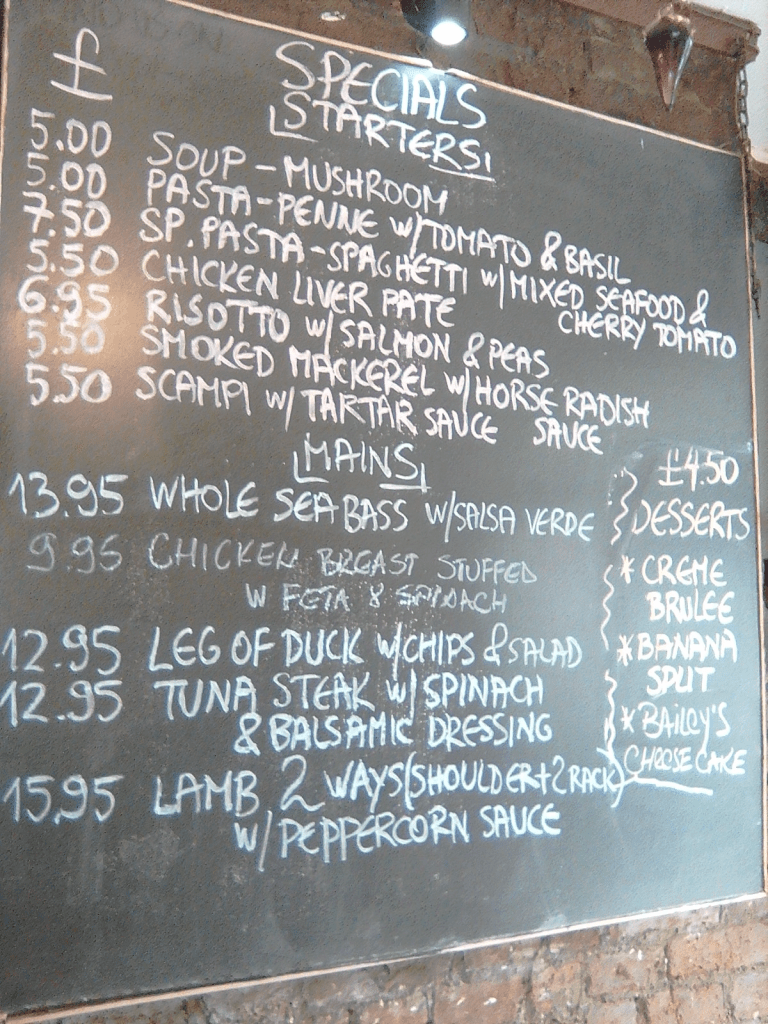 £
SPECIALS
STARTERS
5.00 SOUP - MUSHROOM
5.00 PASTA-PENNE W/TOMATO & BASIL
7.50 SP. PASTA-SPAGHETTI W/MIXED SEAFOOD &
CHERRY TOMATO
5.50 CHICKEN LIVER PATE
6.95 RISOTTO W/SALMON & PEAS
5.50 SMOKED MACKEREL W/HORSE RADISH
SAUCE
5.50 SCAMPI W/TARTAR SAUCE
MAINS
13.95 WHOLE SEA BASS W/SALSA VERDE
9.95 CHICKEN BREAST STUFFED
W FETA & SPINACH
12.95 LEG OF DUCK W/CHIPS & SALAD
12.95 TUNA STEAK W/SPINACH
& BALSAMIC DRESSING
15.95 LAMB 2 WAYS(SHOULDER+2RACK)
W/PEPPERCORN SAUCE
£4.50
DESSERTS
* CREME
BRULEE
* BANANA
SPLIT
* BAILEY'S
CHEESE CAKE